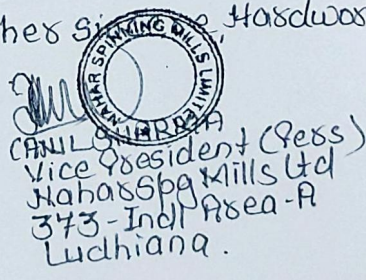 her Si Hardwor
NAHAR SPINNING MILLS LIMITED
(ANIL SHARMA
Vice President (Pers)
Nahar Spg Mills Ltd
373-Indl Area-A
Ludhiana.